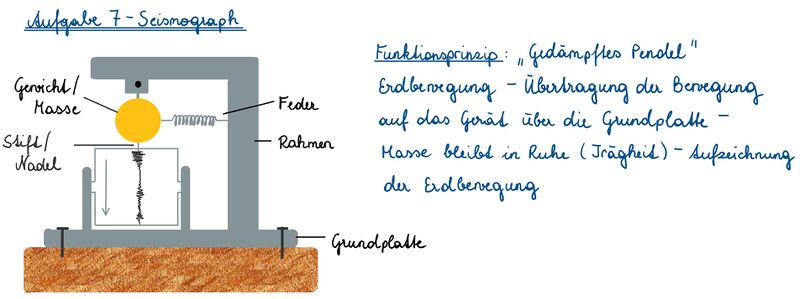 Aufgabe 7 - Seismograph
Gewicht/
Masse
Stift/
Nadel
Feder
Rahmen
Grundplatte
Funktionsprinzip: „Gedämpftes Pendel"
Erdbewegung - Übertragung der Bewegung
auf das Gerät über die Grundplatte -
Masse bleibt in Ruhe (Trägheit) - Aufzeichnung
der Erdbewegung